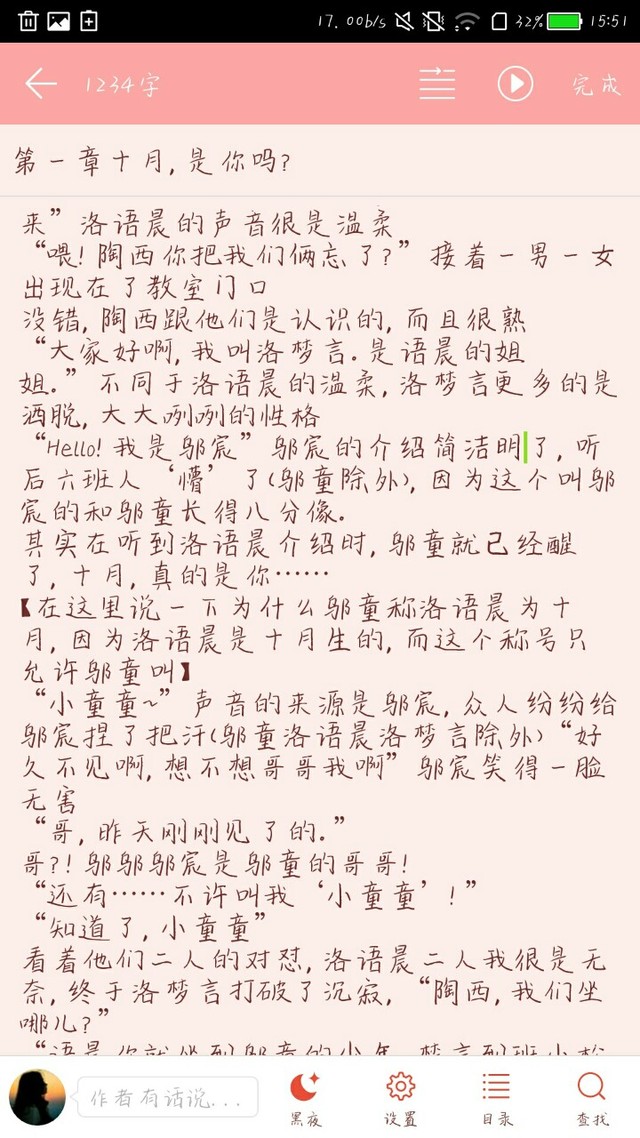 17.00b/s 32% 15:51
1234字 完成
第一章十月,是你吗?
来”洛语晨的声音很是温柔
“喂!陶西你把我们俩忘了?”接着一男一女
出现在了教室门口
没错,陶西跟他们是认识的,而且很熟
“大家好啊,我叫洛梦言.是语晨的姐
姐。”不同于洛语晨的温柔,洛梦言更多的是
洒脱,大大咧咧的性格
“Hello!我是邬宸”邬宸的介绍简洁明了,听
后六班人‘懵’了(邬童除外),因为这个叫邬
宸的和邬童长得八分像.
其实在听到洛语晨介绍时,邬童就已经醒
了,十月,真的是你……
【在这里说一下为什么邬童称洛语晨为十
月,因为洛语晨是十月生的,而这个称号只
允许邬童叫】
“小童童~”声音的来源是邬宸,众人纷纷给
邬宸捏了把汗(邬童洛语晨洛梦言除外)“好
久不见啊,想不想哥哥我啊”邬宸笑得一脸
无害
“哥,昨天刚刚见了的.”
哥?!邬邬邬宸是邬童的哥哥!
“还有……不许叫我‘小童童’!”
“知道了,小童童”
看着他们二人的对怼,洛语晨二人我很是无
奈,终于洛梦言打破了沉寂,“陶西,我们坐
哪儿?”
作者有话说...
黑夜 设置 目录 查找